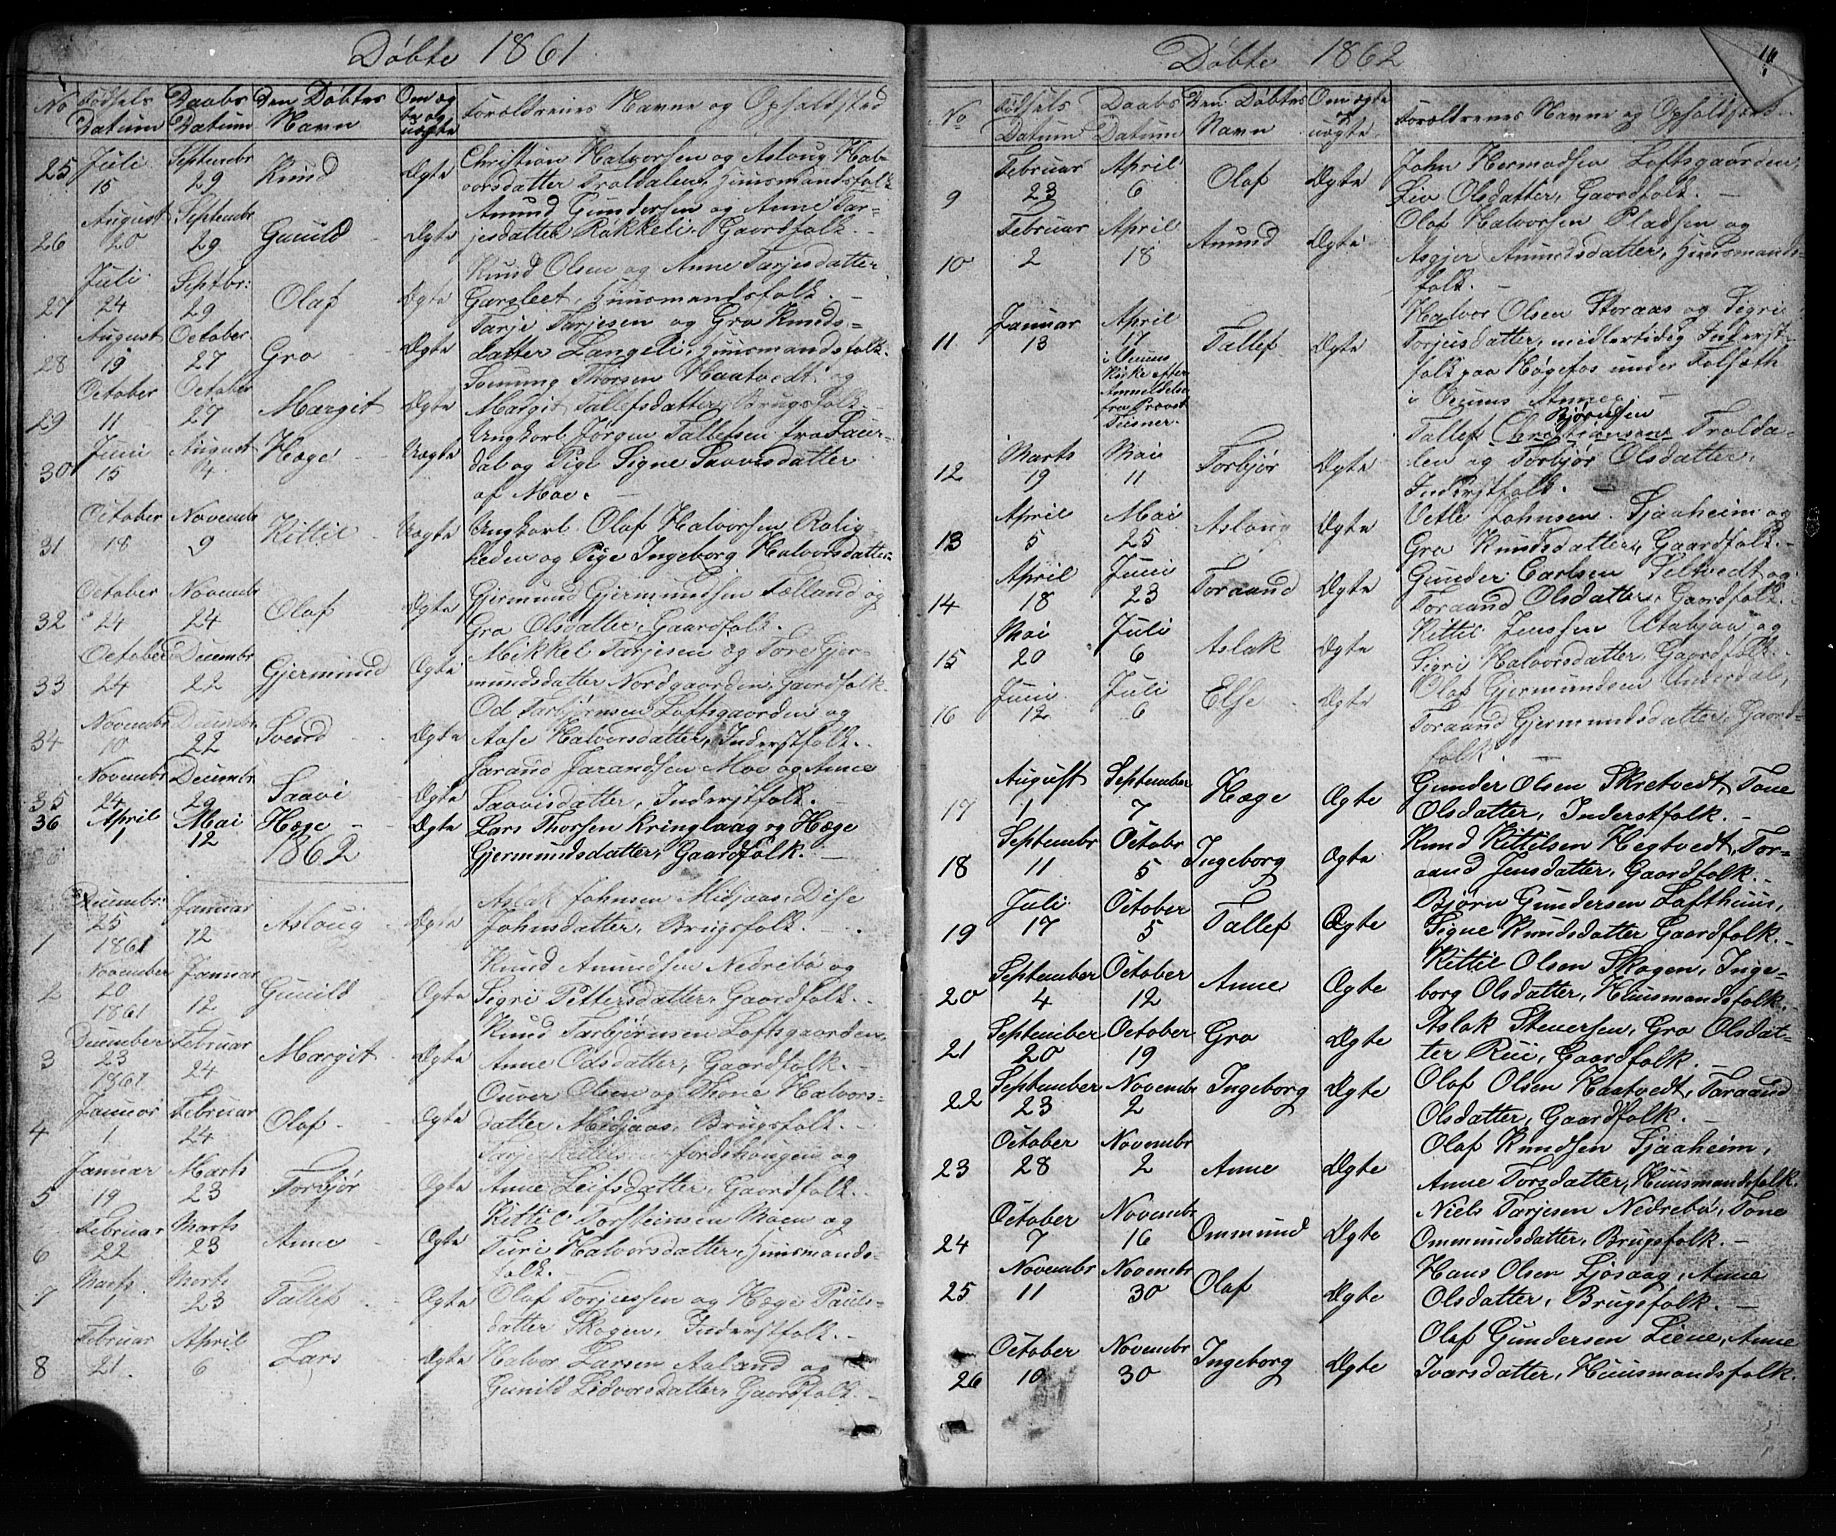 Døbte 1861
No Fødsels Datum Daabs Datum Den Døbtes Navn Om ægte og uægte Forældrenes Navne og Opholdsted
25 Juli 15 Septembr 29 Knud Ægte Christian Halvorsen og Asloug Hal-
vorsdatter Troldalen, Huusmandsfolk
26 August 20 Septembr 29 Gunild Ægte Amund Gundersen og Anne Tar-
jesdatter Røkkeli, Gaardfolk. -
27 Juli 24 Septbr: 29 Olaf Ægte Knud Olsen og Anne Tarjesdatter
Huusmandsfolk. -
28 August 19 October 27 Gro Ægte Tarje Tarjesen og Gro Knuds-
datter Langeli, Huusmandsfolk.
29 October 11 October 27 Margit Ægte Thorsen Haatvedt og
Margit Tallefsdatter, Brugsfolk -
30 Juni 15 August 4 Hæge Uægte Ungkarl Jørgen Tallefsen fra Laur-
dal og Pige Signe Saavisdatter
af Moe. -
31 October 18 Novembr 9 Kittil Uægte Ungkarl Olaf Halvorsen Rolig-
heden og Pige Ingeborg Halvorsdatter
32 October 24 Novembr 24 Olaf Ægte Gjermund Gjermundsen Felland og
Gro Olsdatter, Gaardfolk.
33 October 24 Decembr 22 Gjermund Ægte Mikkel Tarjesen og Tore Gjer-
mundsdatter Nordgaarden, Gaardfolk.
34 Novembr 10 Decembr 22 Svend Ægte Od Tarbjørnsen Loftsgaarden og
Aase Halvorsdatter, Inderstfolk. -
35 Novembr 24 Decembr 29 Saavi Ægte Jarand Jarandsen Moe og Anne
Saavisdatter, Inderstfolk. -
36 April 1 Mai 12 Hæge - Ægte Lars Thorsen Kringlaag og Hæge
Gjermundsdatter, Gaardfolk. -
1862
1 Decembr 25 1861 Januar 12 Aslaug Ægte Aslak Johnsen Midjaas, Dise
Johnsdatter, Brugsfolk. -
2 November 20 1861 Januar 12 Gunild Ægte Knud Amundsen Nedrebø og
Sigri Pettersdatter, Gaardfolk. -
3 December 23 1861. Februar 24 Margit Ægte Knud Tarbjørnsen Loftsgaarden,
Anne Odsdatter, Gaardfolk. -
4 Januar 1 Februar 24 Olaf - Ægte Ouver Olsen og Thone Halvors-
datter Midjaas, Brugsfolk. -
5 Januar 19 Marts 23 Torbjør Ægte Tarje og
Anne Leifsdatter, Gaardfolk.
6 Februar 22 Marts 23 Anne Ægte Kittil Torsteinsen Moen og
Turi Halvorsdatter, Huusmands-
folk.
7 Marts 1 Marts 23 Tallef Ægte Olaf Torjussen og Hæge Pauls-
datter Skogen, Inderstfolk. -
8 Februar 21. April 6 Lars Ægte Halvor Larsen Aaland og
Gunild Lidvorsdatter, Gaardfolk. -
Døbte 1862
No Fødsels Datum Daabs Datum Den Døbtes Navn Om ægte og uægte Forældrenes Navne og Opholdsted
9 Februar 23 April 6 Olaf Ægte John Hermodsen Loftsgaarden,
Liv Olsdatter, Gaardfolk. -
10 Februar 2 April 18 Amund Ægte Olaf Halvorsen Pladsen og
Asgjer Amundsdatter, Huusmands-
folk. -
11 Januar 13 April 17 i Kirke efter Anmeldelse fra Provst Tallef Ægte Halvor Olsen Storaas og Sigri
Torjusdatter, midlertidig Inderst-
folk paa Høgefos under
i Annex. -
12 Marts 19 Mai 11 Torbjør Ægte Tallef Bjørnsen Trolda-
len og Torbjør Olsdatter,
Inderstfolk. -
13 April 5 Mai 25 Aslaug Ægte Vetle Johnsen Sjaaheim og
Gro Knudsdatter, Gaardfolk. -
14 April 18 Juni 23 Toraand Ægte Gunder Carlsen Seltvedt og
Toraand Olsdatter, Gaardfolk. -
15 Mai 20 Juli 6 Aslak Ægte Kittil Jenssen Utabjaa og
Sigri Halvorsdatter, Gaardfolk.
16 Juni 12 Juli 6 Else - Ægte Olaf Gjermundsen Underdal,
Toraand Gjermundsdatter, Gaard-
folk. -
17 August 1 September 7 Hæge Ægte Gunder Olsen Skretvedt, Tone
Olsdatter, Inderstfolk. -
18 Septembr 11 Octobr 5 Ingeborg Ægte Knud Kittilsen Hegtvedt, Tor-
aand Jensdatter, Gaardfolk. -
19 Juli 17 October 5 Tallef Ægte Bjørn Gundersen Lofthuus,
Signe Knudsdatter Gaardfolk. -
20 September 4 October 12 Anne Ægte Kittil Olsen Skogen, Inge-
borg Olsdatter, Huusmandsfolk.
21 September 20 October 19 Gro Ægte Aslak Stenersen, Gro Olsdat-
ter Rui, Gaardfolk.
22 September 23 Novembr 2 Ingeborg Ægte Olaf Olsen Haatvedt, Taraand
Olsdatter, Gaardfolk. -
23 October 28 Novembr 2 Anne Ægte Olaf Knudsen Sjaaheim,
Anne Torsdatter, Huusmandsfolk.
24 October 7 Novembr 16 Ommund Ægte Niels Tarjesen Nedrebø, Tone
Ommundsdatter, Brugsfolk. -
25 Novembr 11 Novembr 30 Olaf Ægte Hans Olsen Ljosaag, Anne
Olsdatter, Brugsfolk. -
26 October 10 Novembr 30 Ingeborg Ægte Olaf Gundersen Liene, Anne
Ivarsdatter, Huusmandsfolk.